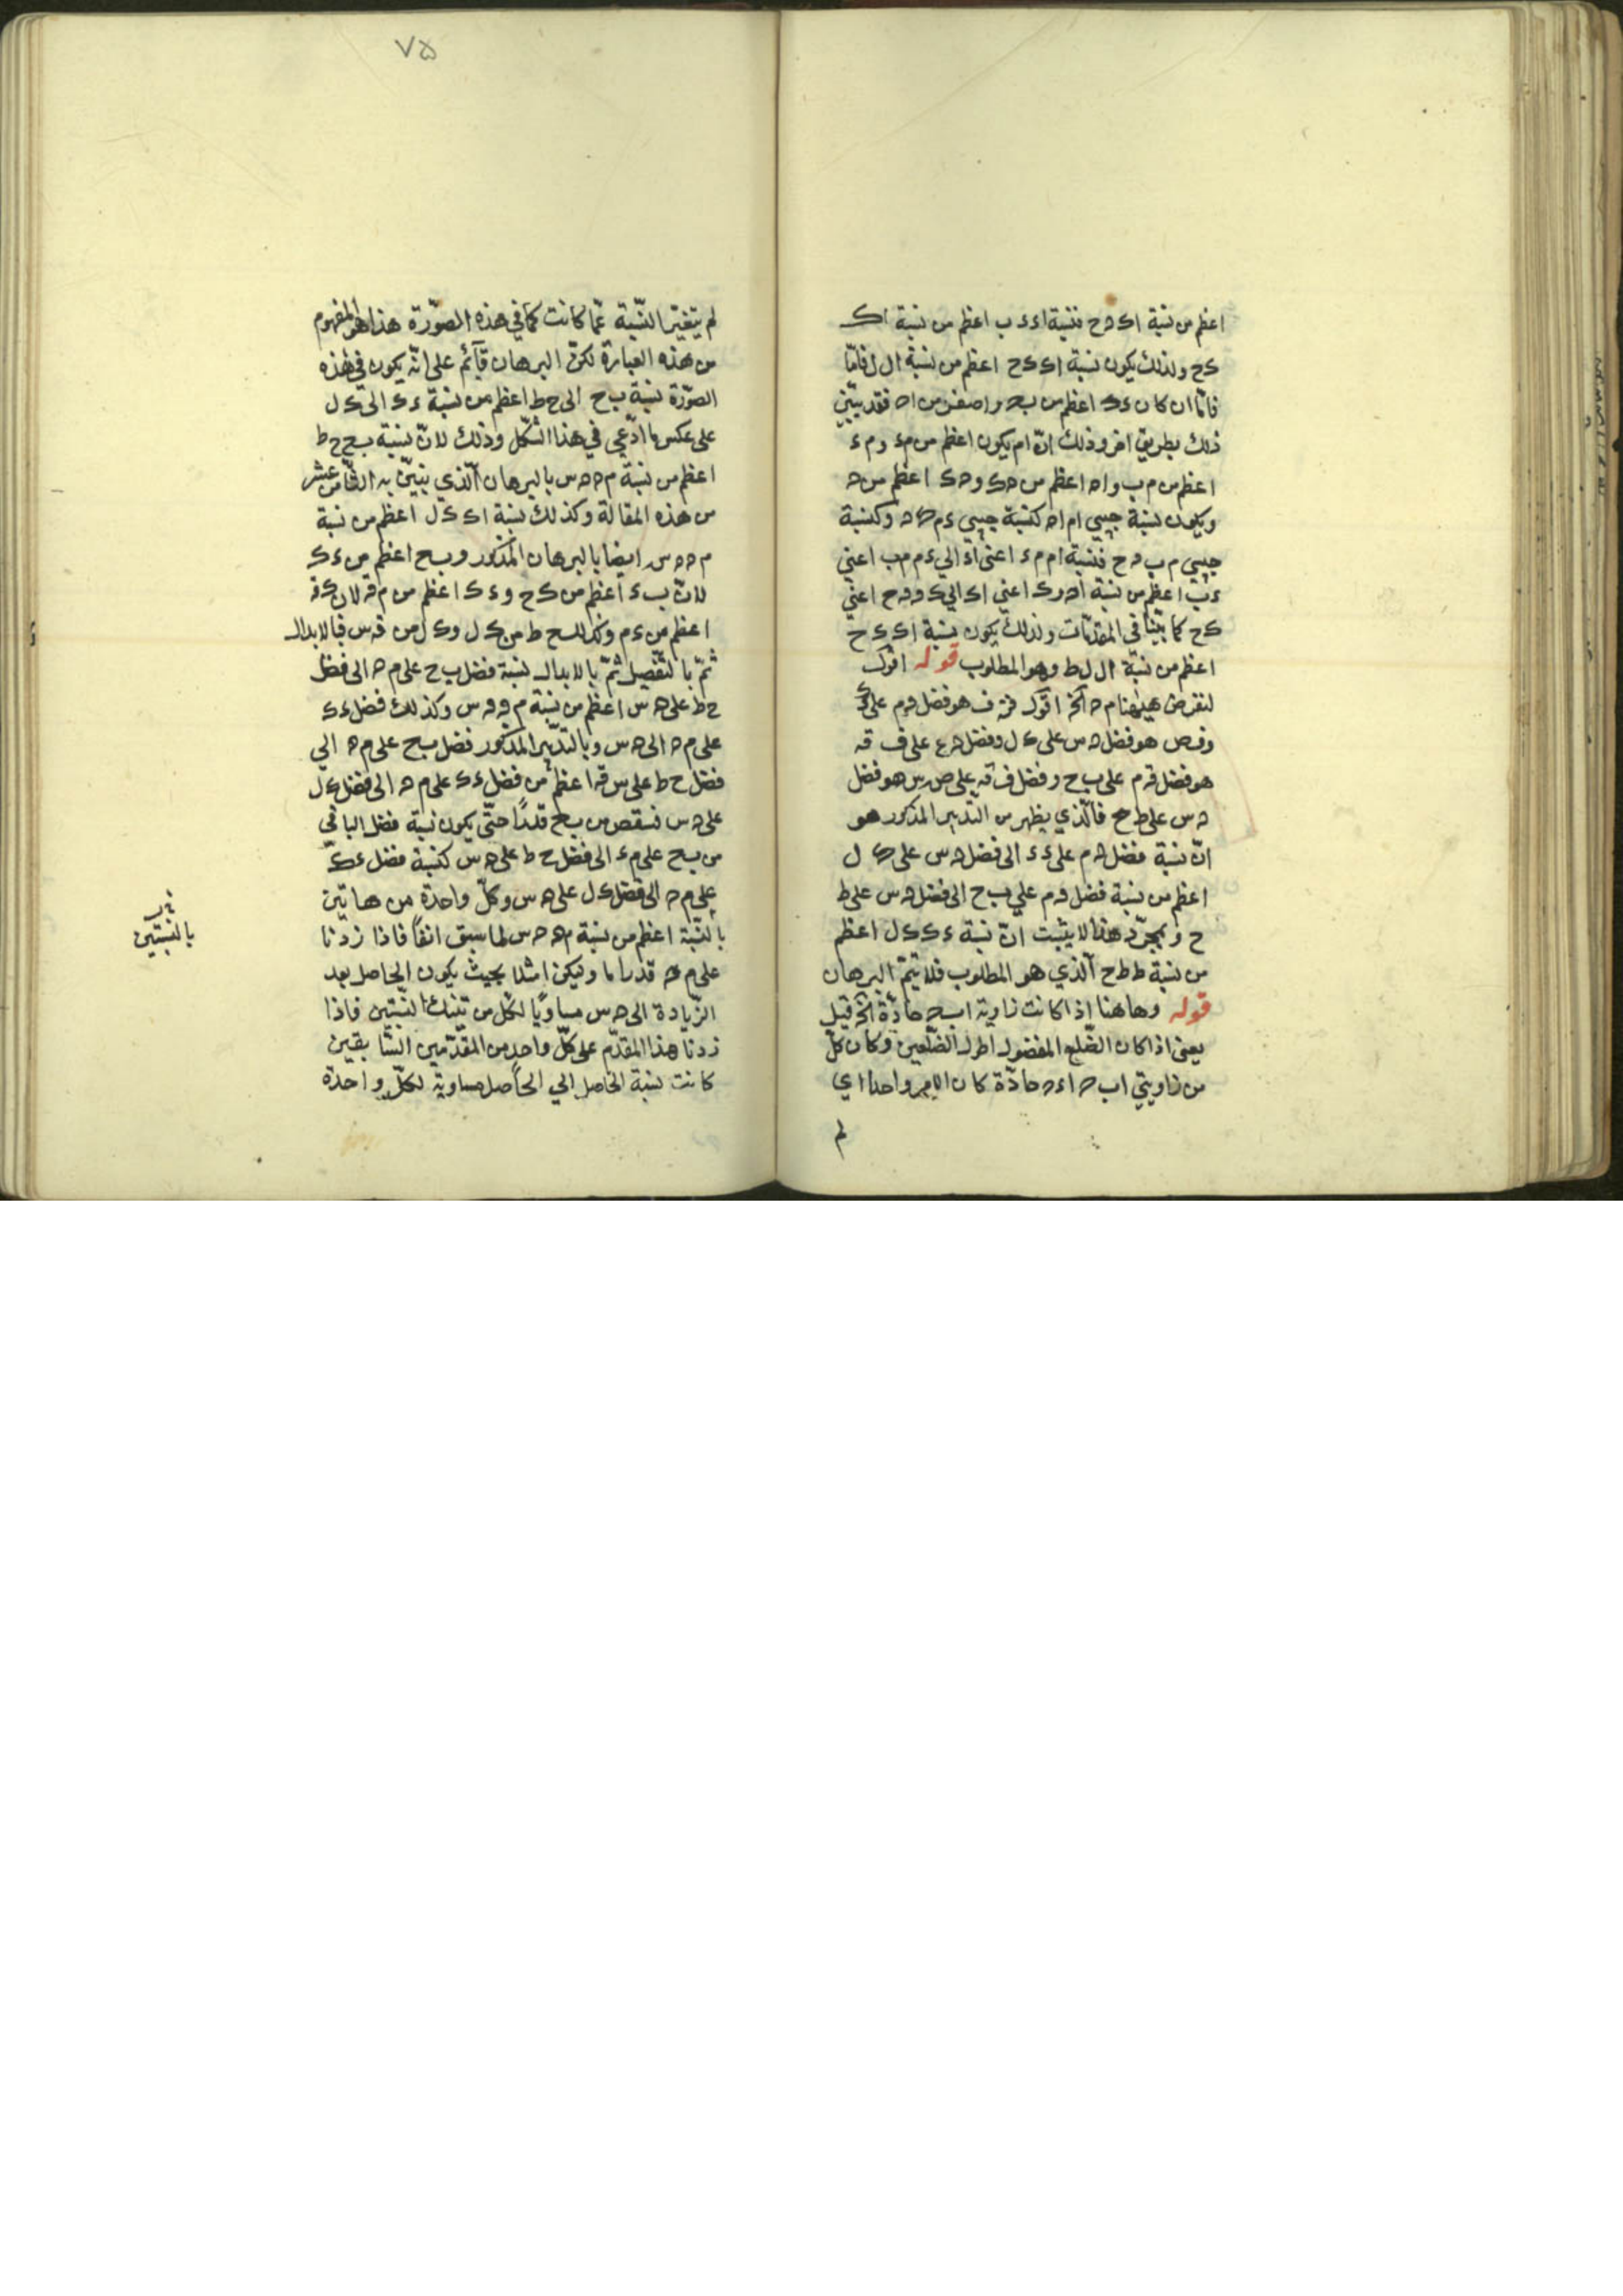 اعظم من نسبة اک ح فنسبة اء ء ب اعظم من نسبة اک
ک ح ولذلك يكون نسبة اک ک ح اعظم من نسبة ال
فاما ان كان ء ک اعظم من ب ه واصغر من ا ه فقد يتبين
ذلك بطريق اخر وذلك ان ام يكون اعظم من م ء و م ء
اعظم من م ب و ا ه اعظم من ه ک و ه ک اعظم من ه
ويكون نسبة جيبي ام ا ه كنسبة جيبي ء م ک ه وكنسبة
جيبي م ب ه ح فنسبة ام م ء اعنى اء الي ء م م ب اعني
ء ب اعظم من نسبة ا ه ه ک اعنى اک الي ک ه ه ح اعني
ک ح كما بينا في المقدمات ولذلك يكون نسبة اک ک ح
اعظم من نسبة ال ل ط وهو المطلوب قوله اقول
لنفرض هيهنا م ه آلخ اقول ف هو فضل ه م على
وف ص هو فضل ه س على ک ل وفضل ه ع على ف ق
هو فضل ه م على ب ح وفضل ف ق على ص س هو فضل
ه س على ط ح فالذي يظهر من التدبير المذكور هو
ان نسبة فضل ه م على ء ک الى فضل ه س على ک ل
اعظم من نسبة فضل ه م علي ب ح الى فضل ه س على ط
ح وبمجرد هذا لا يثبت ان نسبة ء ک ک ل اعظم
من نسبة ط ط ح الذي هو المطلوب فلا يتم البرهان
قوله وهاهنا اذا كانت زاوية اب ه حادة آلخ قيل
يعنى اذا كان الضلع المفضول اطول الضلعين وكان كل
من زاويتي اب ه اء ه حادة كان الامر واحدا اي
لم
٧۵
لم يتغير النسبة عما كانت كما في هذه الصورة هذا هو المفهوم
من هذه العبارة لكن البرهان قآئم على انه يكون في هذه
الصورة نسبة ب ح الى ح ط اعظم من نسبة ء ک الى ک ل
على عكس ما ادعى في هذا الشكل وذلك لان نسبة ب ح ح ط
اعظم من نسبة م ه ه س بالبرهان الذي يبين به الثامن عشر
من هذه المقالة وكذلك نسبة ء ک ک ل اعظم من نسبة
م ه ه س ايضا بالبرهان المذكور و ب ح اعظم من ء ک
لان ب ء اعظم من ک ح و ء ک اعظم من م ق لان ک ق
اعظم من ء م وكذلك ح ط من ک ل و ک ل من ق س فبالابدال
ثم بالتفصيل ثم بالابدال نسبة فضل ب ح على م ه الى فضل
ح ط على ه س اعظم من نسبة م ه ه س وكذلك فضل ء ک
على م ه الى ه س وبالتدبير المذكور فضل ب ح على م ه الي
فضل ح ط على س ق اعظم من فضل ء ک على م ه الى فضل ک ل
على ه س فننقص من ب ح قدرًا حتى يكون نسبة فضل الباقي
من ب ح على م ء الى فضل ح ط على ه س كنسبة فضل ء ک
على م ه الى فضل ک ل على ه س وكل واحدة من هاتين
بالنسبة اعظم من نسبة م ه ه س لما سبق انفًا فاذا زدنا
على م ه قدرا ما وليكن امثلا بحيث يكون الحاصل بعد
الزيادة الى ه س مساويًا لكل من تينك النسبتين فاذا
زدنا هذا المقدم على كل واحد من المقدمين السابقين
كانت نسبة الحاصل الي الحاصل مساوية لكل واحدة
بالنسبتين